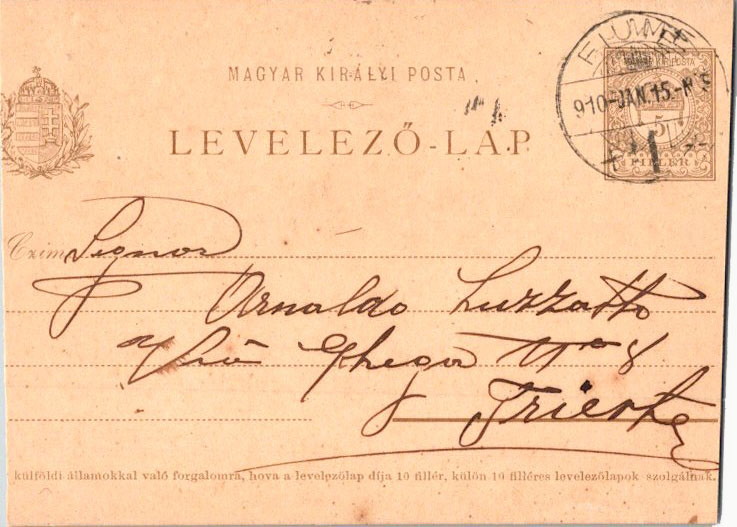 MAGYAR KIRÁLYI POSTA
FIUME
910-JAN.15.-N 5
MAGYAR KIR. POSTA
5
FILLÉR
LEVELEZŐ-LAP
Czím Segnor
Arnaldo Luzzatto
Ghega No 8
Trieste
külföldi államokkal való forgalomra, hova a levelezőlap díja 10 fillér, külön 10 filléres levelezőlapok szolgálnak.